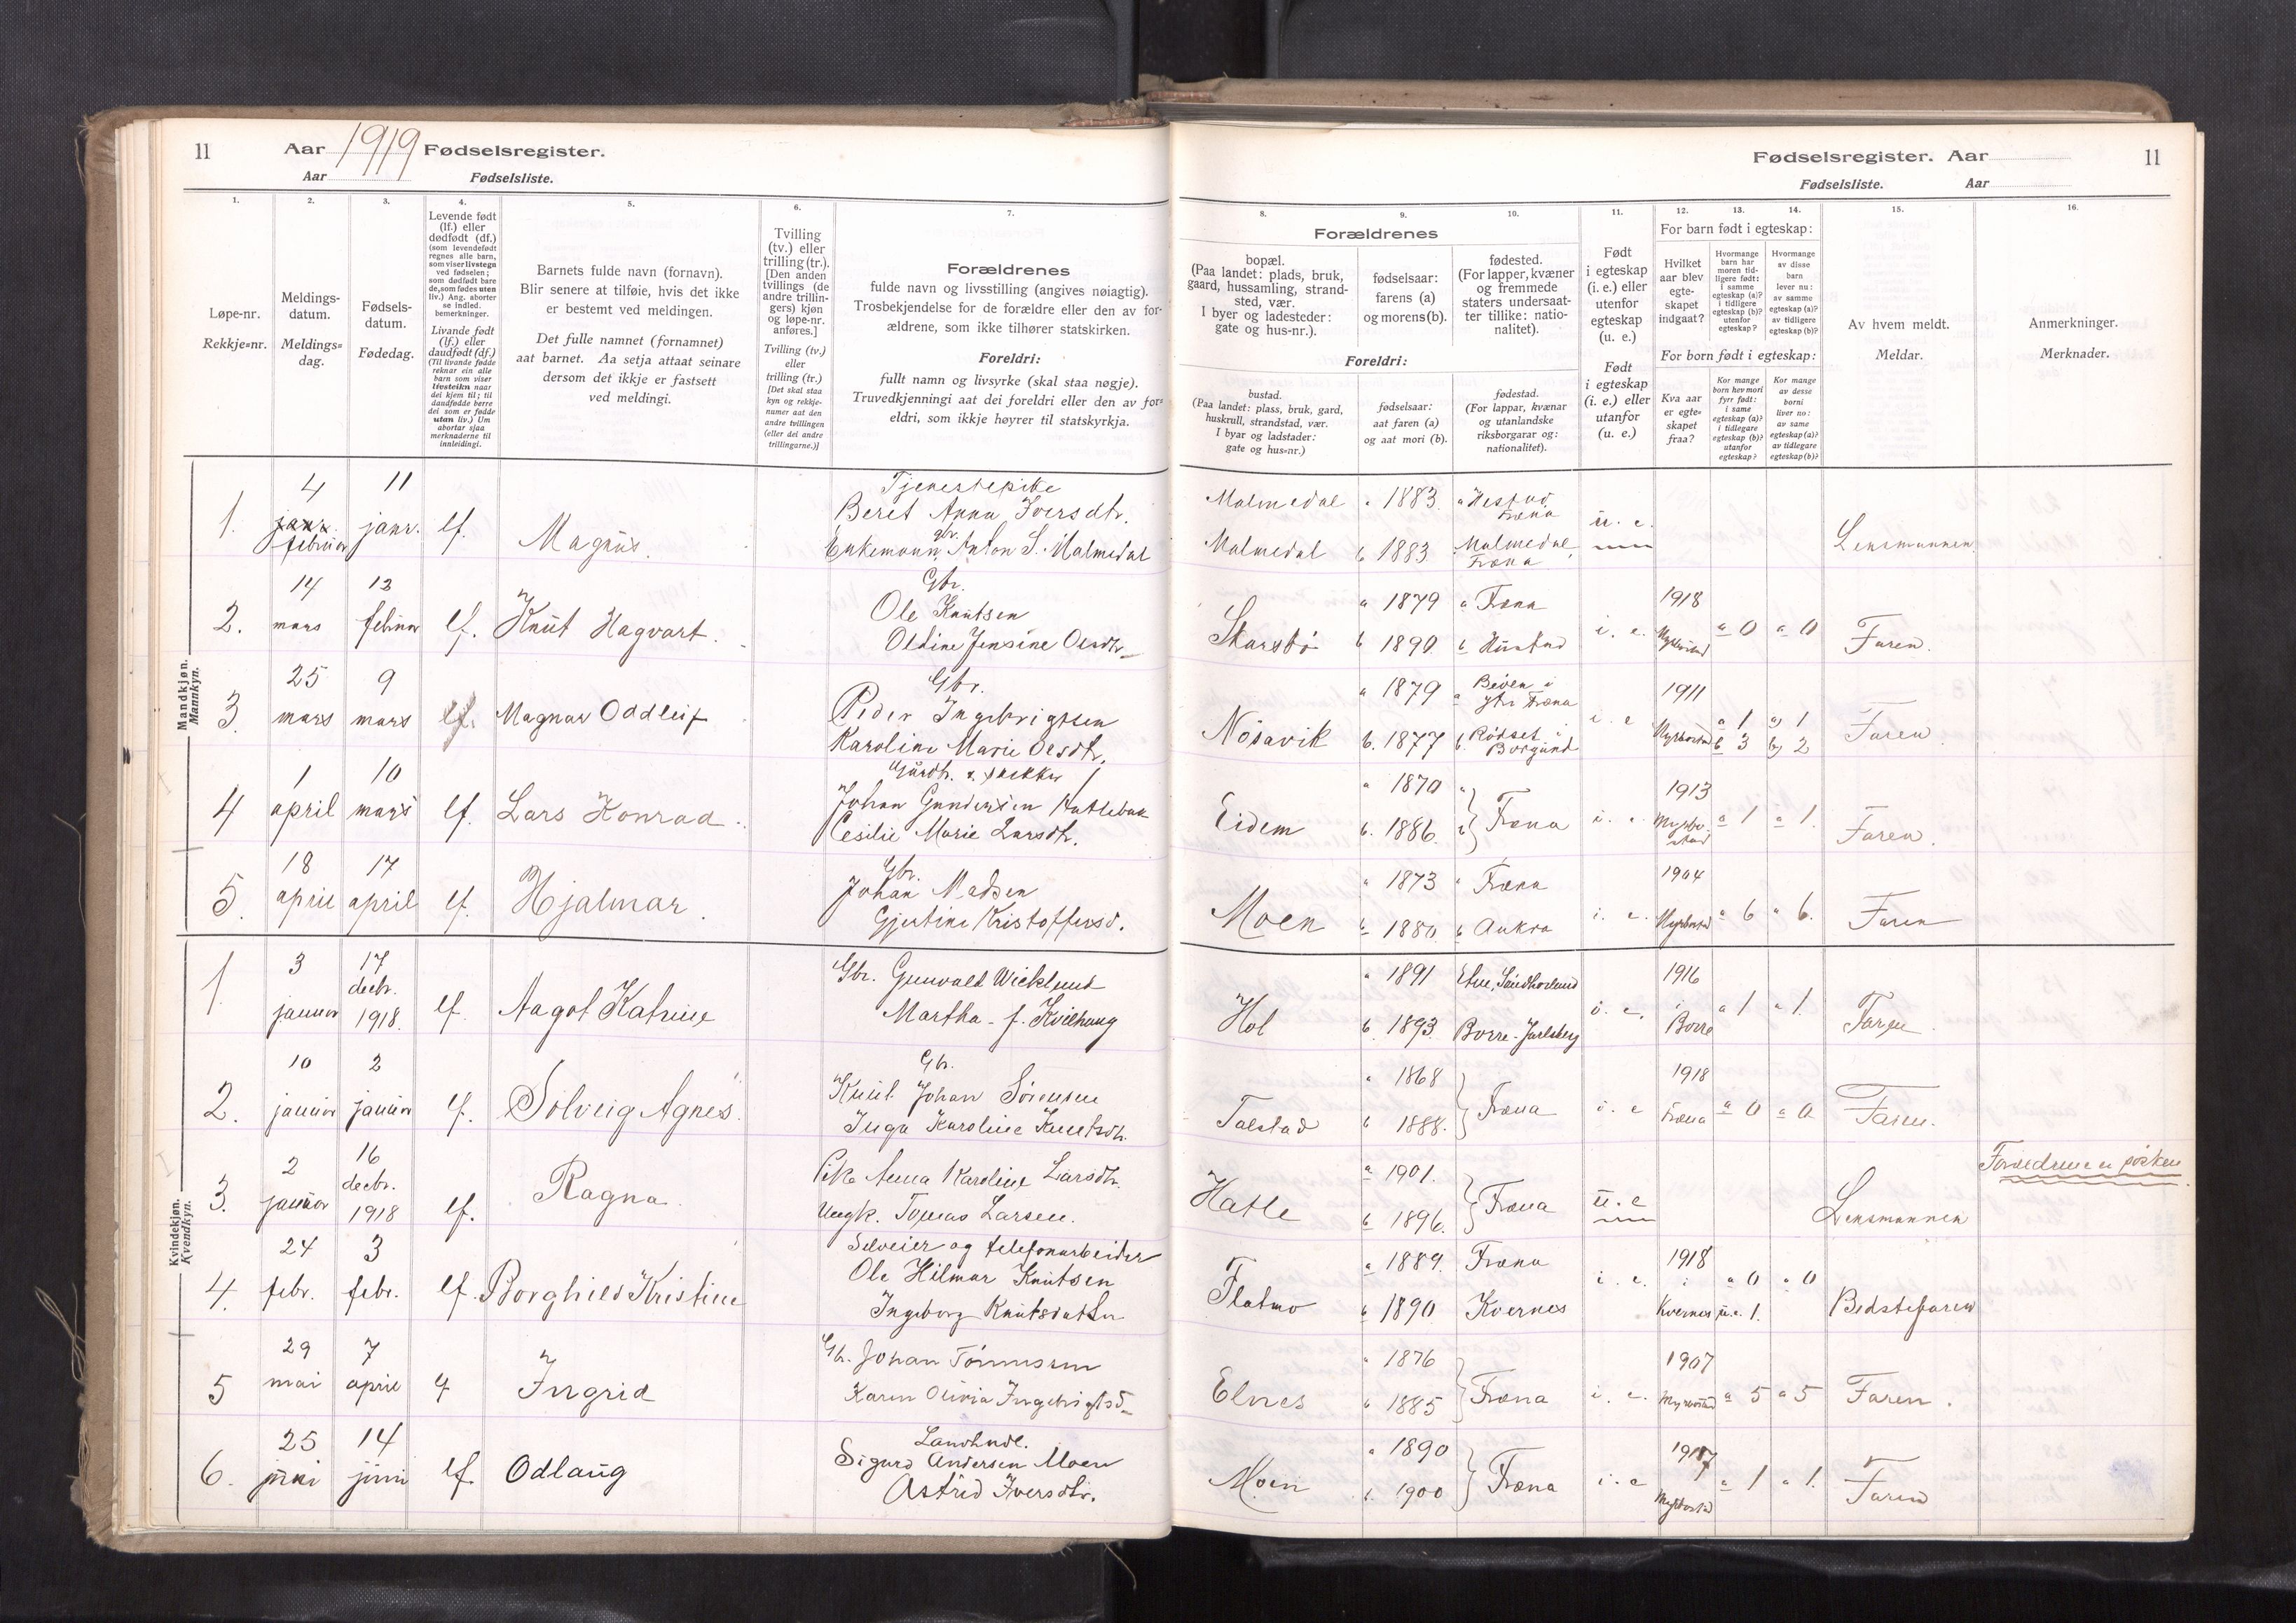 11
Aar 1919 Fødselsregister.
Aar Fødselsliste.
1.
Løpe-nr.
Rekkje=nr.
2.
Meldings-
datum.
Meldings=
dag.
3.
Fødsels-
datum.
Fødedag.
4.
Levende født
(lf.) eller
dødfødt (df.)
(som levendefødt
regnes alle barn,
som viser livstegn
ved fødselen;
som dødfødt bare
de, som fødes uten
liv.) Ang. aborter
se indled.
bemerkninger.
Livande født
(lf.) eller
daudfødt (df.)
(Til livande fødde
reknar ein alle
barn som viser
livsteikn naar
dei kjem til; til
daudfødde berre
dei som er fødde
utan liv.) Um
abortar sjaa
merknaderne til
innleidingi.
5.
Barnets fulde navn (fornavn).
Blir senere at tilføie, hvis det ikke
er bestemt ved meldingen.
Det fulle namnet (fornamnet)
aat barnet. Aa setja attaat seinare
dersom det ikkje er fastsett
ved meldingi.
6.
Tvilling
(tv.) eller
trilling (tr.).
[Den anden
tvillings (de
andre trillin-
gers) kjøn
og løpe-nr.
anføres.]
Tvilling (tv.)
eller
trilling (tr.)
[Det skal staa
kyn og rekkje-
numer aat den
andre tvillingen
(eller dei andre
trillingarne.)]
7.
Forældrenes
fulde navn og livsstilling (angives nøiagtig).
Trosbekjendelse for de forældre eller den av for-
ældrene, som ikke tilhører statskirken.
Foreldri:
fullt namn og livsyrke (skal staa nøgje).
Truvedkjenningi aat dei foreldri eller den av for=
eldri, som ikkje høyrer til statskyrkja.
Mandkjøn.
Mannkyn.
1. 4 janr. februar 11 janr. lf. Magnus.
Tjenestepike
Beret Anna Iversdtr.
gbr.
Enkemann Anton S. Malmedal
2. 14 mars 12 februar lf. Knut Hagvart.
Gbr.
Ole Knutsen
Oldine Jensine Olsdtr
3. 25 mars 9 mars lf. Magnar Oddleif
Gbr.
Peder Ingebrigtsen
Karoline Marie Olsdtr.
4 1 april 10 mars lf. Lars Konrad.
Johan Gundersen
Cesilie Marie Larsdtr.
5. 18 april 17 april lf. Hjalmar.
Gbr.
Johan Madsen
Gjertine Kristoffersd.
Kvindekjøn.
Kvendkyn.
1. 3 januar 17 decbr. 1918. lf. Aagot Katrine
Gbr. Gunvald Wicklund
Martha f. Kvilhaug
2. 10 januar 2 januar lf. Solveig Agnes.
Gbr.
Knut Johan Sørensen
Inga Karoline Knutsdtr.
3. 2 januar 16 decbr. 1918 lf. Ragna.
Pike Anna Karoline Larsdtr.
Ungk. Tomas Larsen.
4. 24 febr. 3 febr. lf. Borghild Kristine
Selveier og telefonarbeider
Ole Hilmar Knutsen
Ingeborg Knutsdatter
5 29 mai 7 april lf Ingrid
Gbr. Johan Tønnesen
Karen Olivia Ingebrigtsd
6. 25 juni 14 juni lf. Odlaug
Landhndl.
Sigurd Andersen Moen
Astrid Iversdtr.
Fødselsregister. Aar 11
Fødselsliste. Aar
8.
Forældrenes
bopæl.
(Paa landet: plads, bruk,
gaard, hussamling, strand-
sted, vær.
I byer og ladesteder:
gate og hus-nr.).
Foreldri:
bustad.
(Paa landet: plass, bruk, gard,
huskrull, strandstad, vær.
I byar og ladstader:
gate og hus=nr.)
9.
fødselsaar:
farens (a)
og morens (b).
fødselsaar:
aat faren (a)
og aat mori (b).
10.
fødested.
(For lapper, kvæner
og fremmede
staters undersaat-
ter tillike: natio-
nalitet).
fødestad.
(For lappar, kvænar
og utanlandske
riksborgarar og:
nationalitet).
11.
Født
i egteskap
(i. e.) eller
utenfor
egteskap
(u. e.)
Født
i egteskap
(i. e.) eller
utanfor
(u. e.)
12.
13.
14.
For barn født i egteskap:
Hvilket
aar blev
egte-
skapet
indgaat?
Hvormange
barn har
moren tid-
ligere født:
i samme
egteskap (a)?
i tidligere
egteskap (b)?
utenfor
egteskap?
Hvormange
av disse
barn
lever nu:
av samme
egteskap (a)?
av tidligere
egteskap (b)?
For born født i egteskap:
Kva aar
er egte=
skapet
fraa?
Kor mange
born hev mori
fyrr født:
i same
egteskap (a)?
i tidlegare
egteskap (b)?
utanfor
egteskap?
Kor mange
av desse
borni
liver no:
av same
egteskap (a)?
av tidlegare
egteskap (b)?
15.
Av hvem meldt.
Meldar.
16.
Anmerkninger.
Merknader.
Malmedal a 1883. a Hestad Fræna
Malmedal b 1883 Malmedal, Fræna u. e. Lensmannen
Skarsbø a 1879 a Fræna
b 1890. b Hustad i. e. 1918 a 0 a 0 Faren.
Nøsavik a 1879 a ytr Fræna
b. 1877 b. Rødset i Borgund i. e 1911 Myrbostad a 1 b 3 a) 1 b) 2 Faren
Eidem a 1870
b. 1886. Fræna i. e. 1913 Myrbostad a 1 a 1. Faren.
Moen a 1873 a Fræna
b 1880. b Aukra i. e. 1904 Myrbostad a 6 a 6. Faren
Hol a 1891 Etne, Søndhorland
b. 1893. Borre. Jarlsberg i. e. 1916 i Borre a 1 a 1. Faren.
Talstad a 1868
b 1888. Fræna i. e 1918 Fræna a 0 a 0 Faren.
Hatle a 1901.
b 1896. Fræna u. e Lensmannen
Flatmo a 1889. Fræna
b 1890 Kvernes i. e. 1918 i Kvernes a 0 u.e. 1. a 0 Bedstefaren
Elnes a 1876
b 1885 Fræna i. e. 1907 Myrbostad a 5 a 5 Faren.
Moen a 1890
b. 1900 Fræna i. e 1917 Myrbostad a 1 a 1. Faren